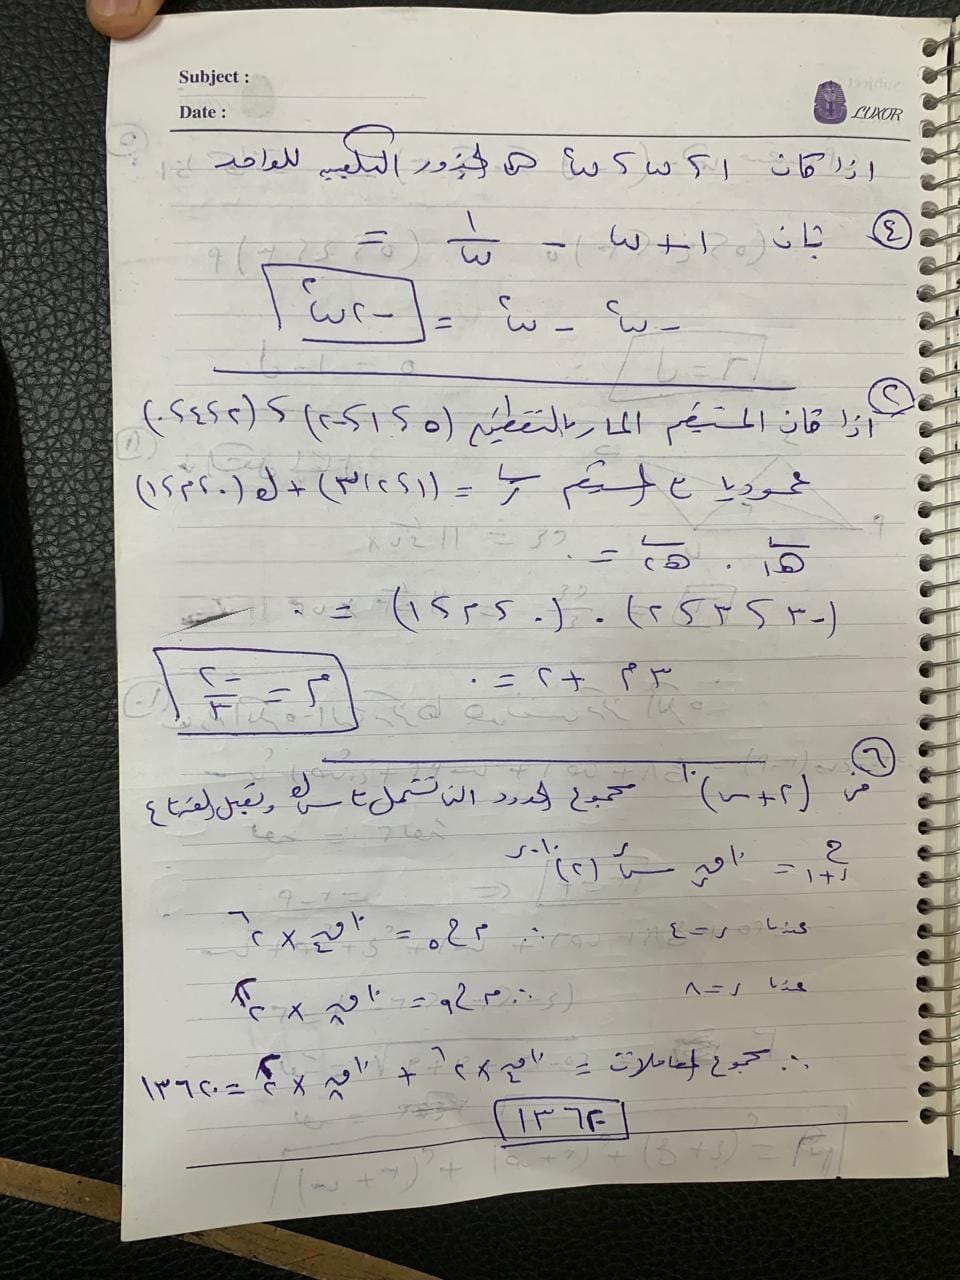 Subject :
Date :
LUXOR
اذا كان ١ ، ω ، ω² هى الجذور التكعيبية للواحد
④ فإن ١ + ω - ١/ω =
-ω² - ω² = -٢ω²
②
اذا كان المستقيم المار بالنقطتين (٥ ، ١ ، -٢) ، (٢ ، ٤ ، ٠)
عموديا ع المستقيم ر = (١ ، ٢ ، ٣) + ك (٠ ، م ، ١)
هـ١ . هـ٢ = ٠
(-٣ ، ٣ ، ٢) . (٠ ، م ، ١) = ٠
٣م + ٢ = ٠
م = -٢/٣
⑥
فى (٢+س)^١٠ مجموع الحدود التى تشمل س
ح ر+١ = ١٠ق ر س^ر (٢)^١٠-ر
عندما ر = ٤ ∴ م ح٥ = ١٠ق٤ × ٢^٦
عندما ر = ٨ ∴ م ح٩ = ١٠ق٨ × ٢^٢
∴ مجموع المعاملات = ١٠ق٤ × ٢^٦ + ١٠ق٨ × ٢^٢ = ١٣٦٢٠